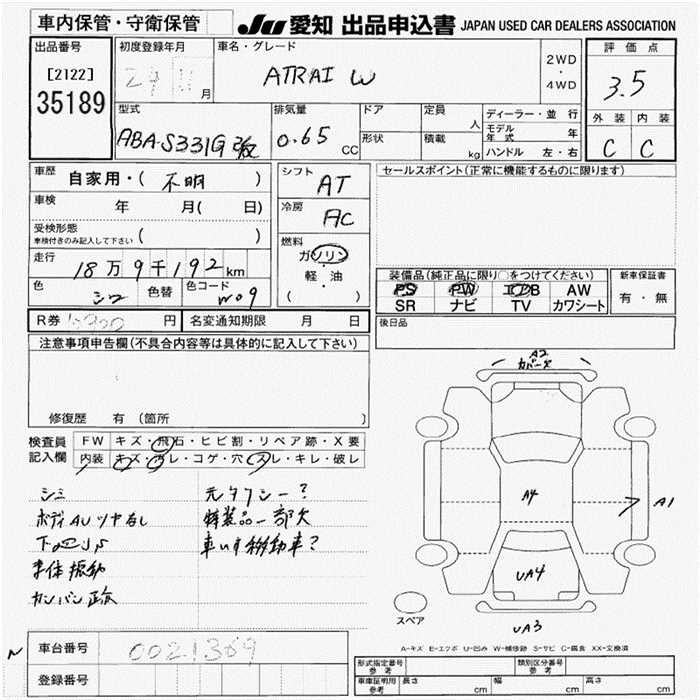 車内保管・守衛保管
JU 愛知 出品申込書 JAPAN USED CAR DEALERS ASSOCIATION
出品番号
[2122]
35189
初度登録年月
月
車名・グレード
ATRAI W
2WD
・
4WD
評価点
3.5
外装 内装
C C
型式
ABA-S331G改
排気量
0.65
CC
ドア
形状
定員
人
積載
kg
ディーラー・並行
モデル年式 年
ハンドル 左・右
車歴
自家用・( 不明 )
車検
年 月( 日)
受検形態
車検付きのみ記入して下さい ( )
走行
18万9千192km
色
シロ
色替
色コード
W09
シフト
AT
冷房
AC
燃料
ガソリン
軽・油
( )
セールスポイント(正常に機能するものに限ります)
装備品(純正品に限り○をつけてください)
PS PW エアB AW
SR ナビ TV カワシート
新車保証書
有・無
後日品
R券 円
名変通知期限 月 日
注意事項申告欄(不具合内容等は具体的に記入して下さい)
修復歴 有 (箇所 )
検査員
記入欄
FW キズ・飛石・ヒビ割・リペア跡・X要
内装 キズ・ヨゴレ・コゲ・穴・スレ・キレ・破レ
シミ
ボディAUツヤなし
下回りJS
車体振動
カンバン跡
元タクシー?
特装品一部欠
車いす移動車?
A2
カバーズ
A4
A1
UA4
UA3
スペア
A-キズ E-エクボ U-凹み W-補修跡 S-サビ C-腐食 XX-交換済
車台番号
0021369
登録番号
型式指定番号
参考
類別区分番号
参考
車庫証明用
参考
長さ cm 幅 cm 高さ cm